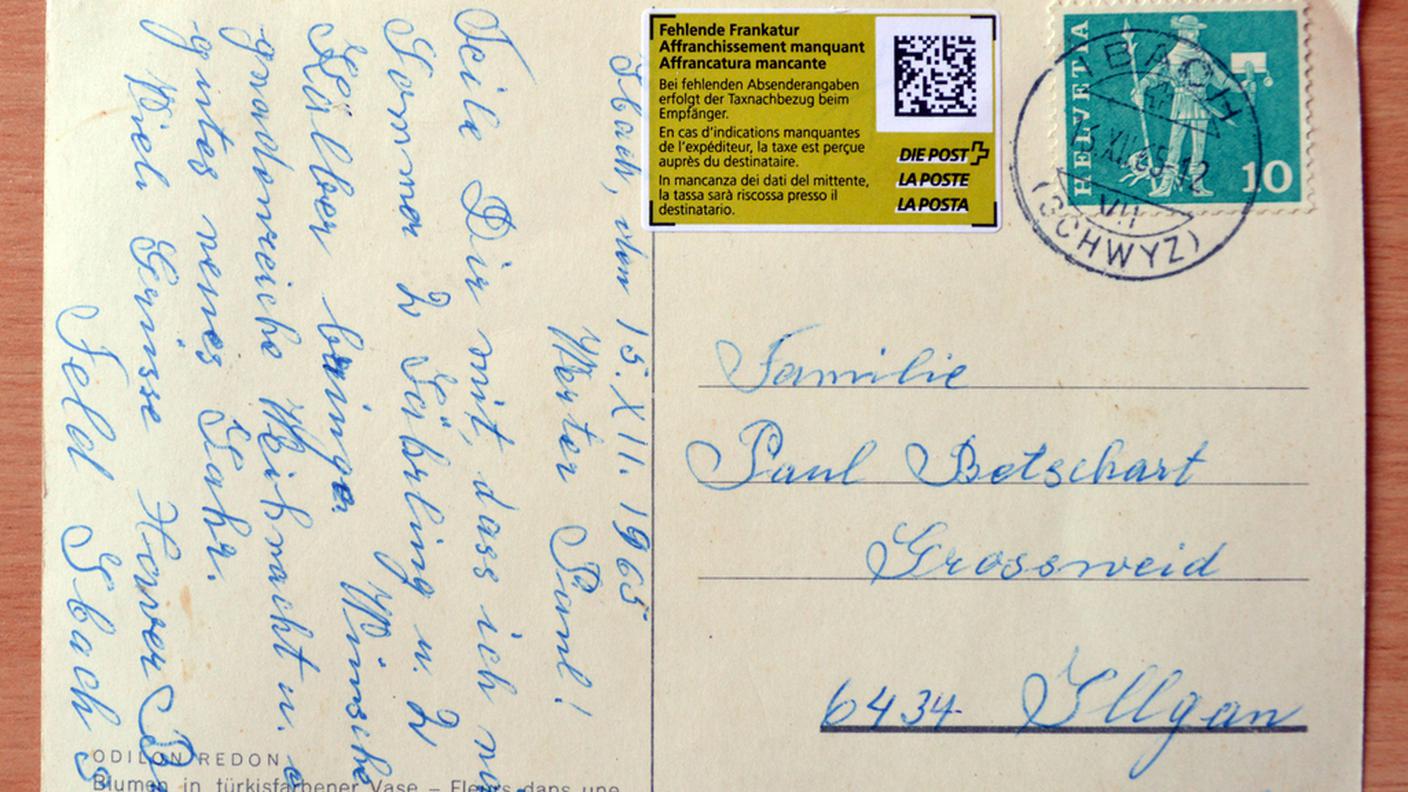 Fehlende Frankatur
Affranchissement manquant
Affrancatura mancante
Bei fehlenden Absenderangaben
erfolgt der Taxnachbezug beim
Empfänger.
En cas d'indications manquantes
de l'expéditeur, la taxe est perçue
auprès du destinataire.
In mancanza dei dati del mittente,
la tassa sarà riscossa presso il
destinatario.
DIE POST
LA POSTE
LA POSTA
HELVETIA
10
IBACH
XII.65-12
(SCHWYZ)
Ibach, den 15.XII.1965
Werter Paul!
Teile Dir mit, dass ich
Sommer 2 u. 2
Kälber bringe. Wünsche
gnadenreiche Weihnacht u.
gutes neues Jahr.
Viel Grüsse
Feld Ibach
Familie
Paul Betschart
Grossweid
6434 Illgau
ODILON REDON
Blumen in türkisfarbener Vase – Fleurs dans une